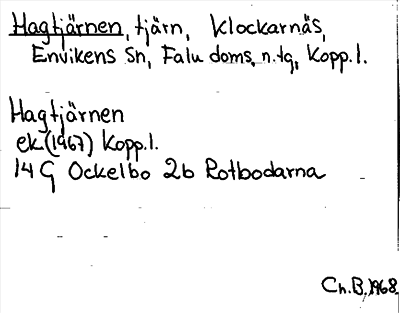 Hagtjärnen, tjärn, Klockarnäs,
Envikens Sn, Falu doms. n. tg, Kopp. l.
Hagtjärnen
ek. (1967) Kopp. l.
14 G Ockelbo 2b Rotbodarna
Ch. B. 1968.